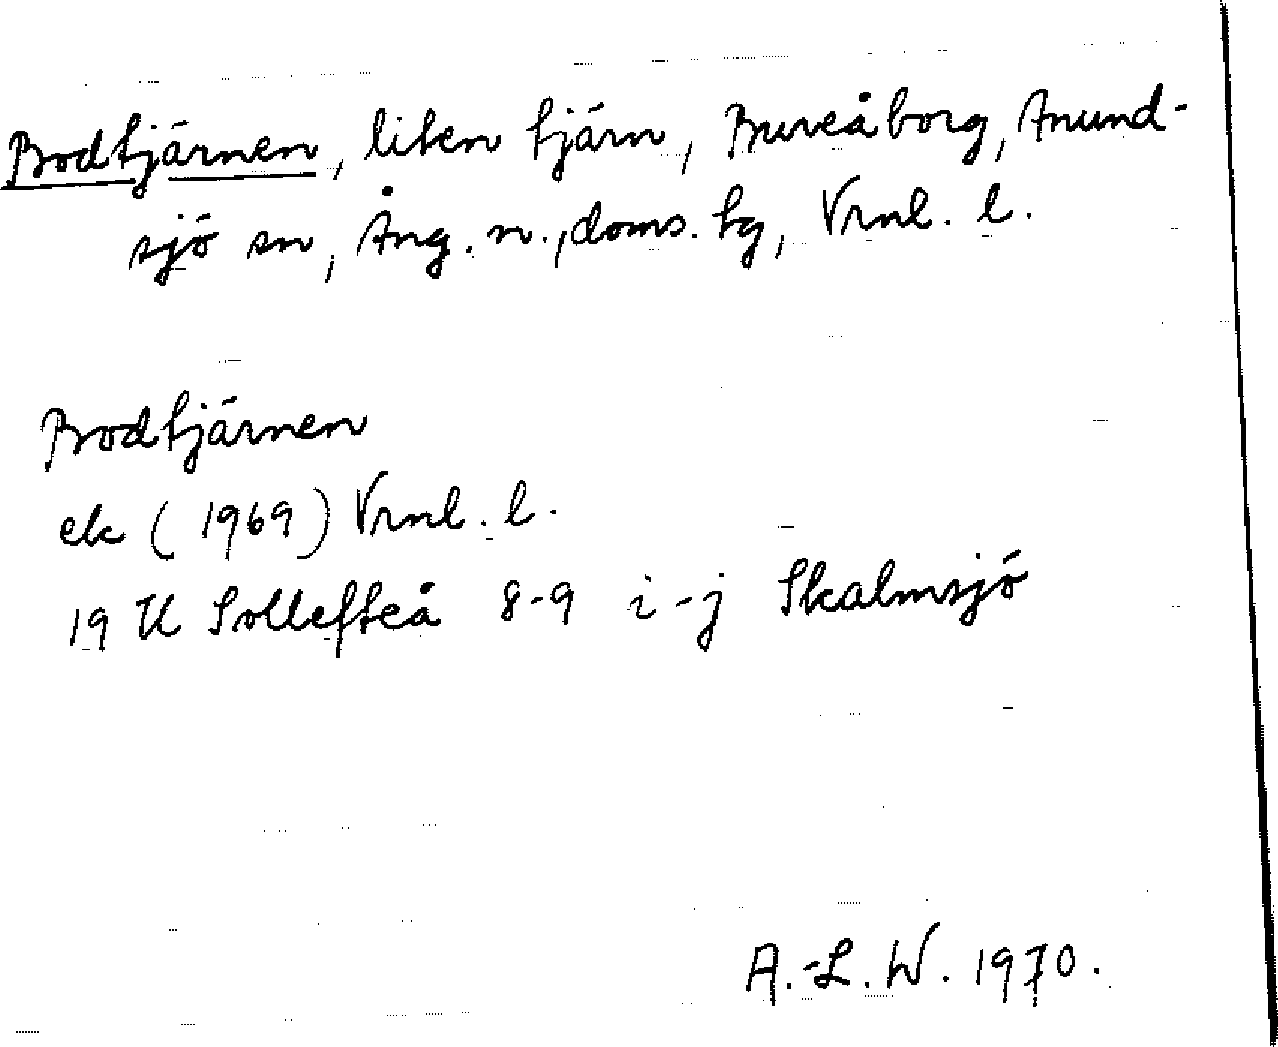 Bodtjärnen, liten tjärn, Bureåborg, Anund-
sjö sn, Ång. n., doms. tg, Vrnl. l.
Bodtjärnen
ek (1969) Vrnl. l.
19 H Sollefteå 8-9 i-j Skalmsjö
A.-L. W. 1970.